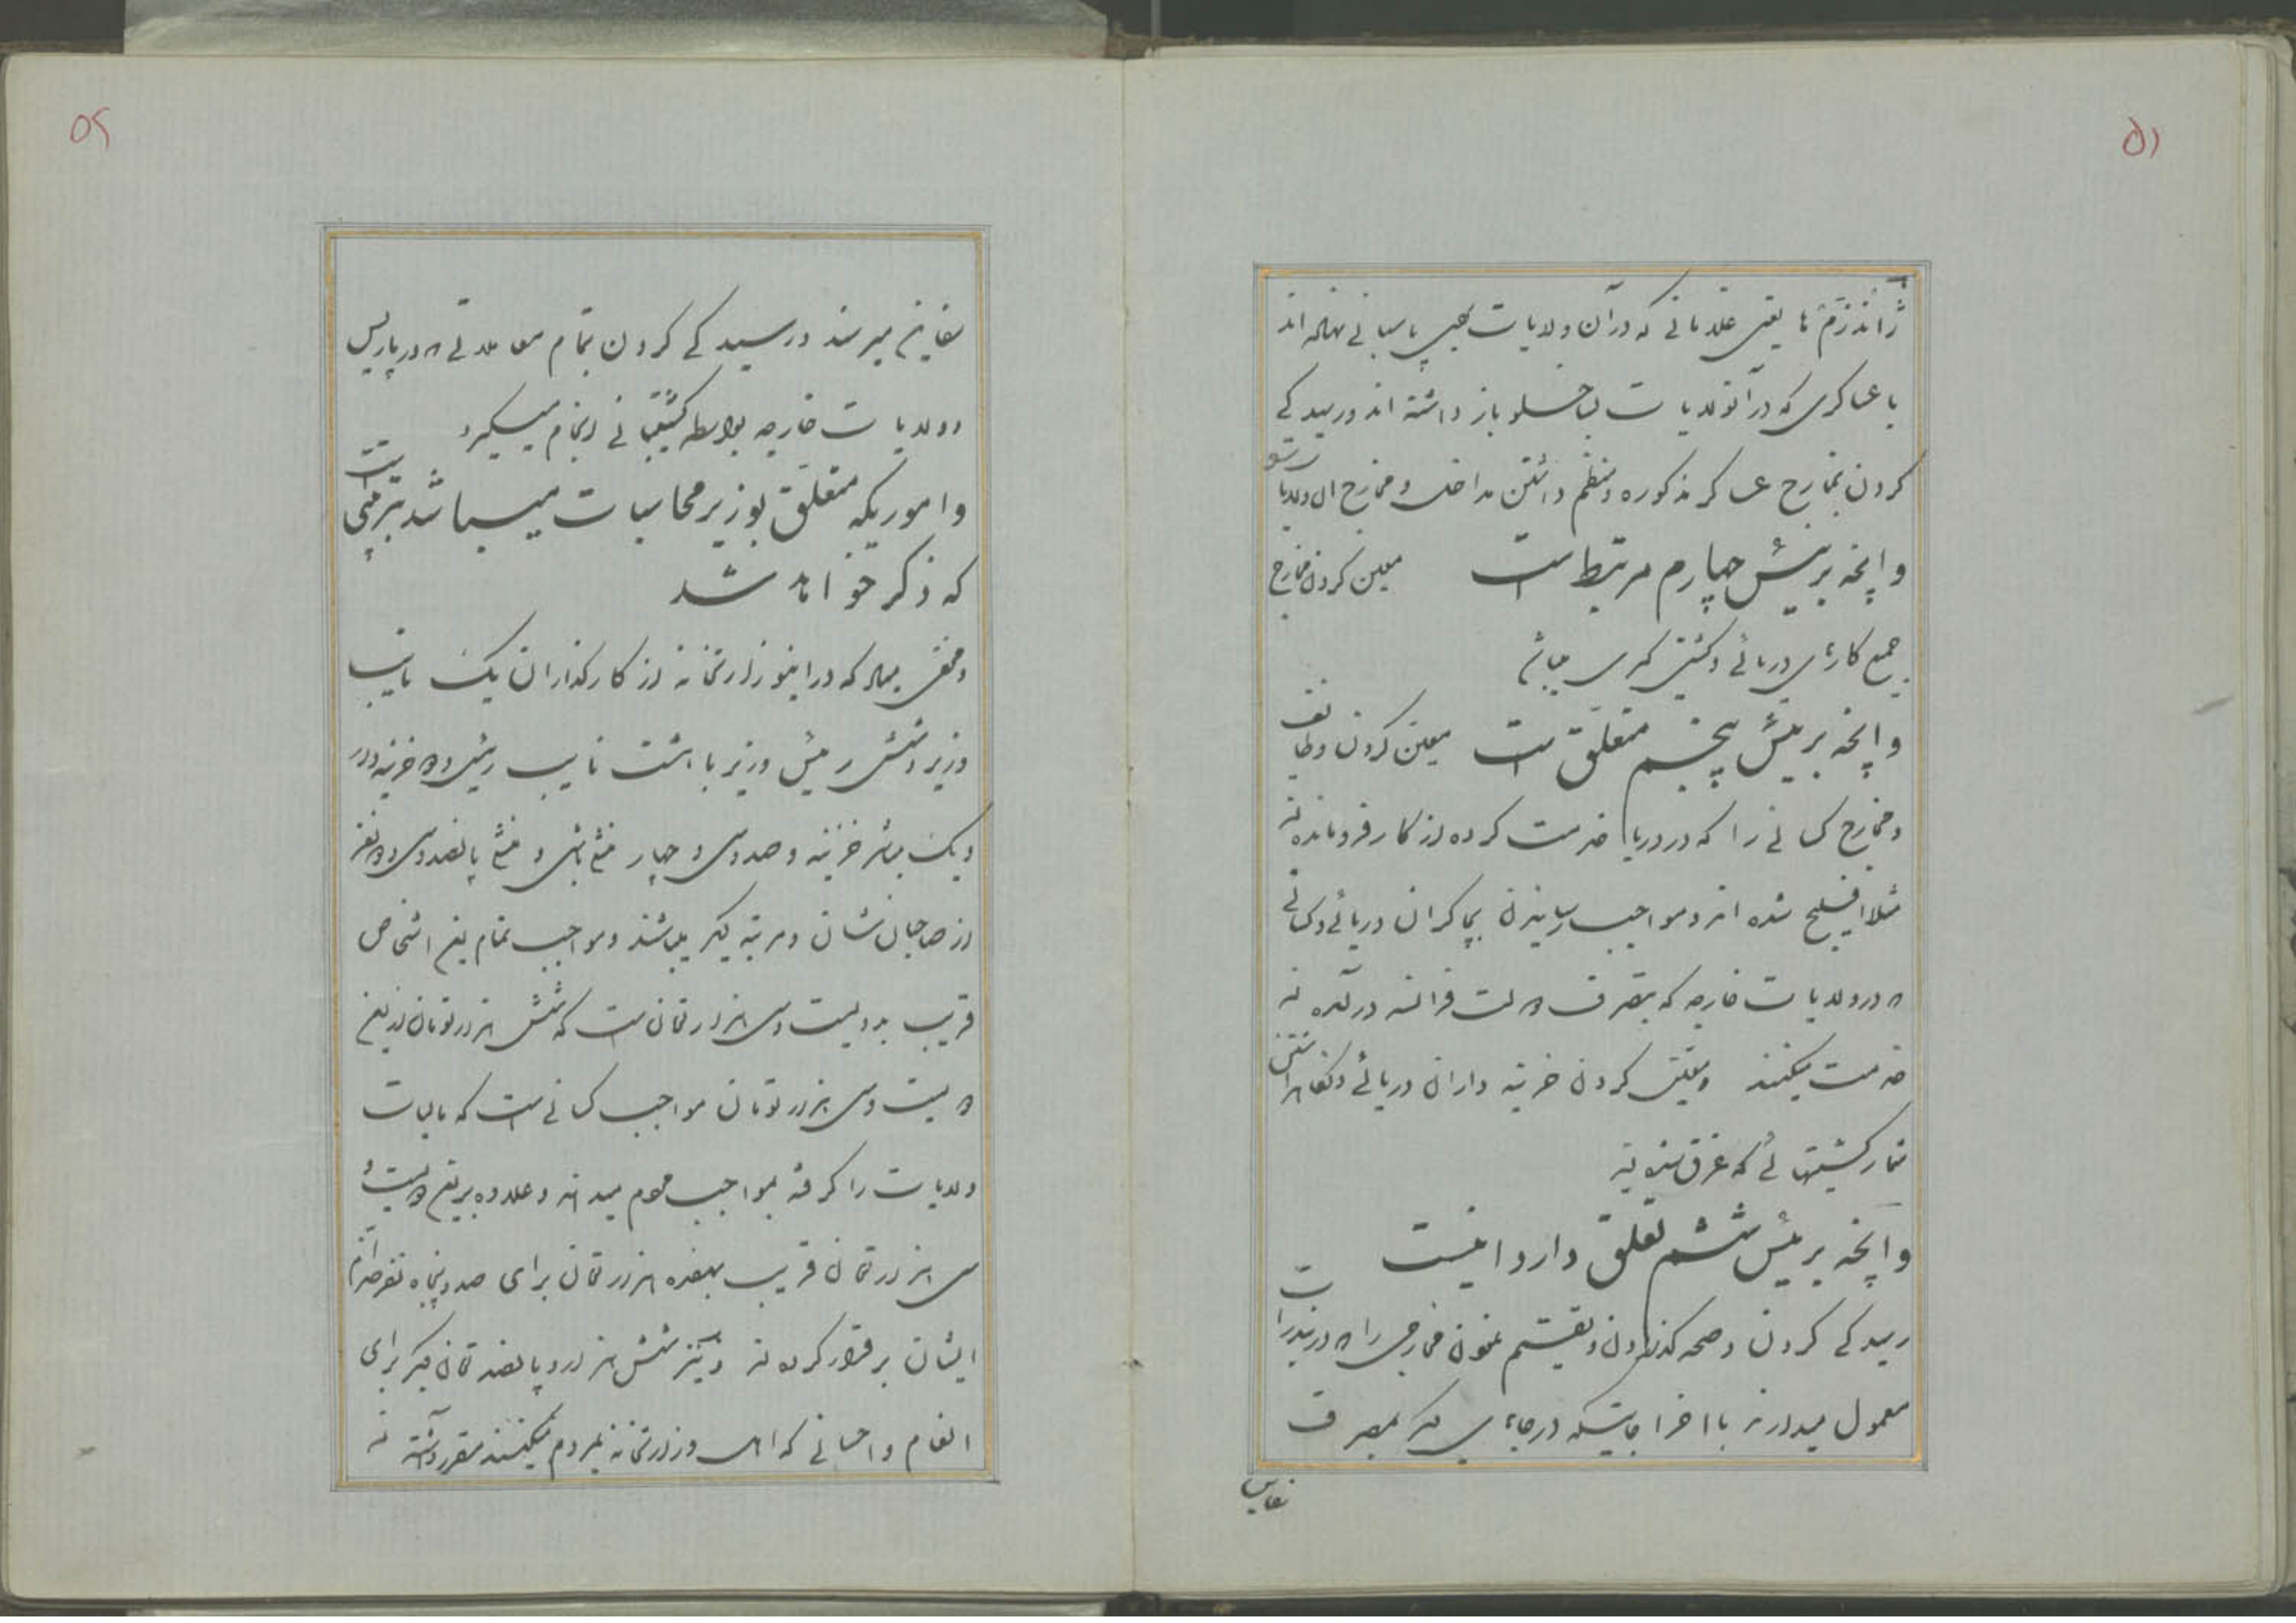 ۵۱
ژاندرم ها یعنی غلامانی که در آن ولایات بجهت پاسبانی نهاده اند
با عساکری که در آنولایات بساخلو باز داشته اند و رسیدگی
کردن بمخارج عساکر مذکوره و منظم داشتن مداخل و مخارج ال ولایات
و آنچه برئیس چهارم مرتبط است معین کردن مخارج
جمیع کارهای دریائی و کشتی
و آنچه برئیس پنجم متعلق است معین کردن وظایف
و مخارج کسانی را که در دریا خدمت کرده از کار فرومانده اند
مثلا افلیج شده اند و مواجب رسانیدن بچاکران دریائی و کسانی
در ولایات خارجه که بتصرف دولت فرانسه در آمده اند
خدمت میکنند و معین کردن خزینه داران دریائی و نگاه داشتن
شمار کشتیهائی که غرق شده اند
و آنچه برئیس ششم تعلق دارد اینست
رسیدگی کردن و صحه گذاردن و تقسیم نمودن مخارجی را در بندرات
معمول میدارند با اخراجاتیکه در جاهای دیگر بمصرف
سفاین
۵۲
سفاین میرسد و رسیدگی کردن بتمام معاملاتی در پاریس
و ولایات خارجه بواسطه کشتیبانی انجام میگیرد
و اموریکه متعلق بوزیر محاسبات میباشد بترتیبی است
که ذکر خواهد شد
و مخفی نماند که در اینوزارتخانه از کارگذاران یک نایب
وزیر و شش رئیس وزیر با هشت نایب رئیس و دو خزینه دار
و یک مباشر خزینه و صد و سی و چهار منشی باشی و منشی پانصد و سی و دو نفر
از صاحبان نشان و مرتبه دیگر میباشند و مواجب تمام این اشخاص
قریب بدویست و سی هزار تومان است که شش هزار تومان از این
دویست و سی هزار تومان مواجب کسانی است که مالیات
ولایات را گرفته بمواجب مردم میدهند و علاوه بر این دویست و
سی هزار تومان قریب بهفده هزار تومان برای صد و پنجاه نفر خدام
ایشان برقرار کرده اند و نیز شش هزار و پانصد تومان دیگر برای
انعام و احسانی که اهل وزارتخانه بمردم میکنند مقرر داشته اند